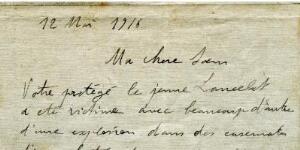 12 Mai 1916
Ma chere Soeur
Votre protégé le jeune Lancelot
a été victime avec beaucoup d'autre
d'une explosion dans des casemates